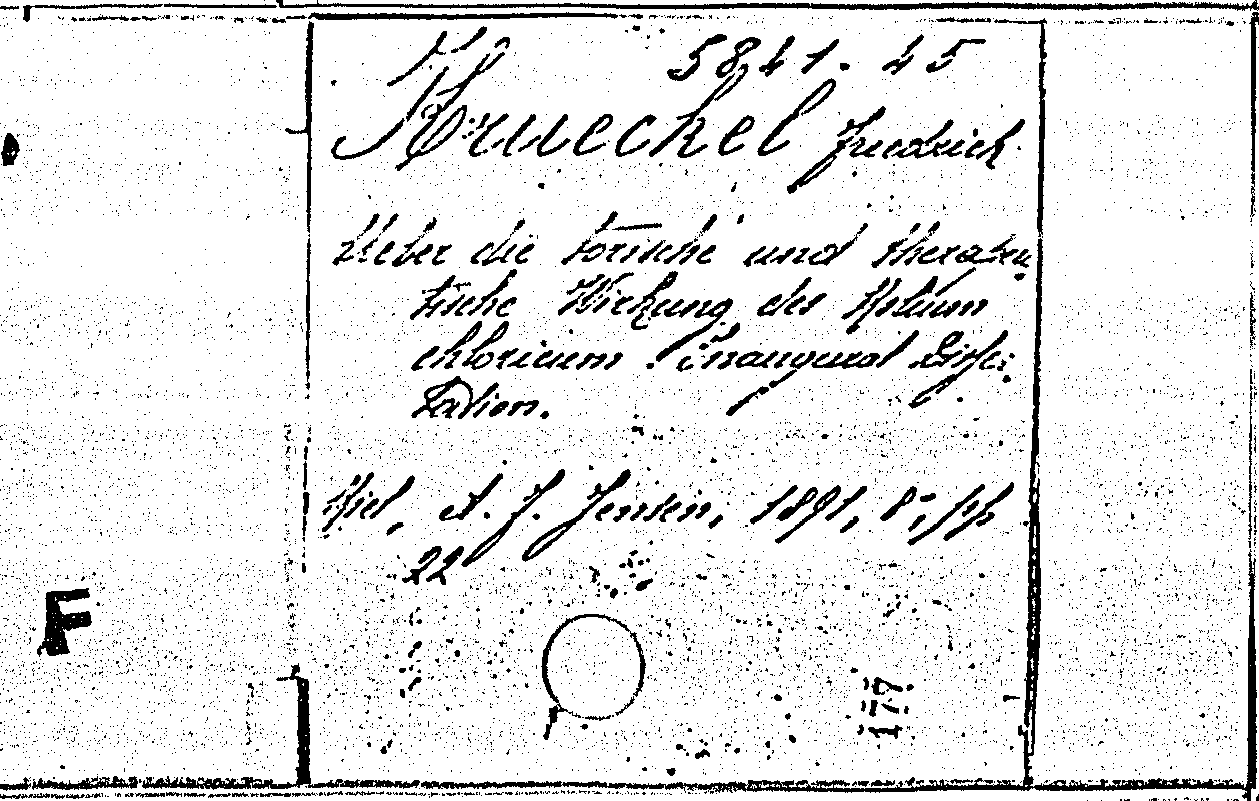 5841.45
Krueckel Friedrich
Ueber die toxische und therapeu-
tische Wirkung des Kalium
chloricum. Inaugural Disser-
tation.
Kiel, A. F. Jensen, 1891, 8°, pp
22
F
177